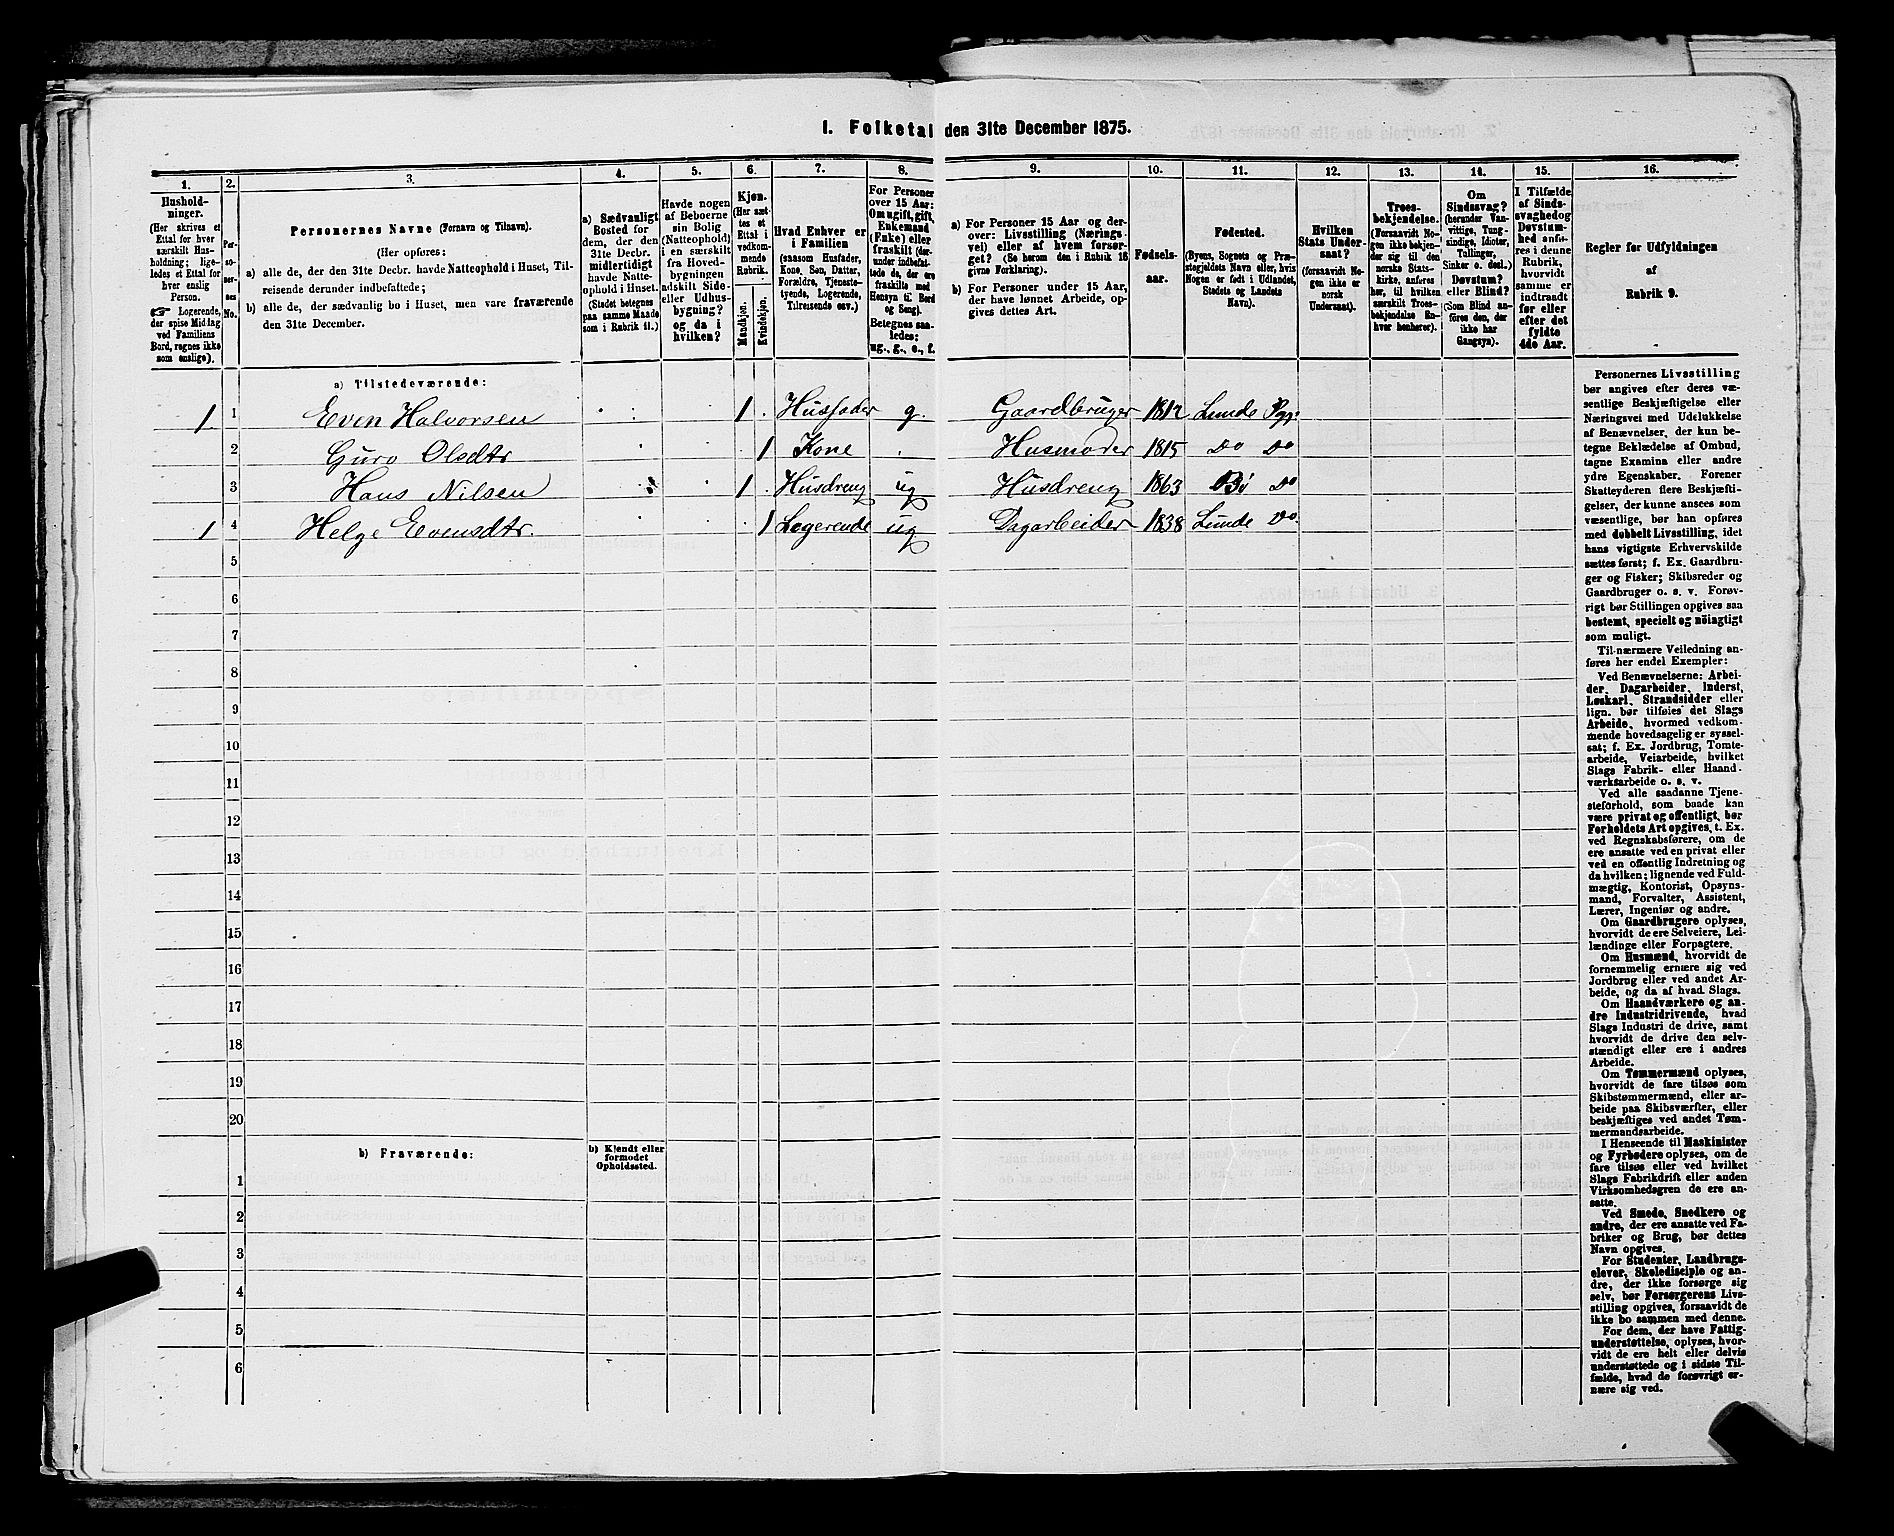 1. Folketal den 31te December 1875.
1.
Hushold-
ninger.
(Her skrives et
Ettal for hver
særskilt Hus-
holdning; lige-
ledes et Ettal for
hver enslig
Person.
☞ Logerende,
der spise Middag
ved Familiens
Bord, regnes ikke
som enslige).
2.
Per-
so-
ner-
nes
No.
3.
Personernes Navne (Fornavn og Tilnavn).
(Her opføres:
a) alle de, der den 31te Decbr. havde Natteophold i Huset, Til-
reisende derunder indbefattede;
b) alle de, der sædvanlig bo i Huset, men vare fraværende
den 31te December.
4.
a) Sædvanligt
Bosted for
dem, der den
31te Decbr.
midlertidigt
havde Natte-
ophold i Huset.
(Stedet betegnes
paa samme Maade
som i Rubrik 11.)
5.
Havde nogen
af Beboerne
sin Bolig
(Natteophold)
i en særskilt
fra Hoved-
bygningen
adskilt Side-
eller Udhus-
bygning?
og da i
hvilken?
6.
Kjøn.
(Her sæt-
tes et
Ettal i
vedkom-
mende
Rubrik.
Mandkjøn.
Kvindekjøn.
7.
Hvad Enhver er
i Familien
(saasom Husfader,
Kone, Søn, Datter,
Forældre, Tjeneste-
tyende, Logerende,
Tilreisende osv.)
8.
For Personer
over 15 Aar:
Om ugift, gift,
Enkemand
(Enke) eller
fraskilt (der-
under indbefat-
tede de, der ere
fraskilte med
Hensyn til Bord
og Seng).
Betegnes saa-
ledes:
ug., g., e., f.
9.
a) For Personer 15 Aar og der-
over: Livsstilling (Nærings-
vei) eller af hvem forsør-
get? (Se herom den i Rubrik 16
givne Forklaring).
b) For Personer under 15 Aar,
der have lønnet Arbeide, op-
gives dettes Art.
10.
Fødsels-
aar.
11.
Fødested.
(Byens, Sognets og Præ-
stegjeldets Navn eller, hvis
Nogen er født i Udlandet,
Stedets og Landets
Navn).
12.
Hvilken
Stats Under-
saat?
(forsaavidt No-
gen ikke er
norsk
Undersaat).
13.
Troes-
bekjendelse.
(Forsaavidt No-
gen ikke bekjen-
der sig til den
norske Stats-
kirke, anføres
her, til hvilken
særskilt Troes-
bekjendelse En-
hver henhører).
14.
Om
Sindssvag?
(herunder Van-
vittige, Tung-
sindige, Idioter,
Tullinger,
Sinker o. desl.)
Døvstum?
eller Blind?
(Som Blind an-
føres den, der
ikke har
Gangsyn).
15.
I Tilfælde
af Sinds-
svaghed og
Døvstum-
hed anfø-
res i denne
Rubrik,
hvorvidt
samme er
indtraadt
før eller
efter det
fyldte
4de Aar.
16.
Regler for Udfyldningen
af
Rubrik 9.
a) Tilstedeværende:
1 1 Even Halvorsen 1 Husfader g. Gaardbruger 1812 Lunde Pgj:
2 Guro Olsdtr 1 Kone Husmoder 1815 Do Do
3 Hans Nilsen 1 Husdreng ug Husdreng 1863 Bö Do
1 4 Helge Evensdtr. 1 Logerende ug Dagarbeider 1838 Lunde Do.
5
6
7
8
9
10
11
12
13
14
15
16
17
18
19
20
b) Fraværende:
b) Kjendt eller
formodet
Opholdssted.
1
2
3
4
5
6
Personernes Livsstilling
bør angives efter deres væ-
sentlige Beskjæftigelse eller
Næringsvei med Udelukkelse
af Benævnelser, der kun be-
tegne Beklædelse af Ombud,
tagne Examina eller andre
ydre Egenskaber. Forener
Skatteyderen flere Beskjæfti-
gelser, der kunne ansees som
væsentlige, bør han opføres
med dobbelt Livsstilling, idet
hans vigtigste Erhvervskilde
sættes først; f. Ex. Gaardbru-
ger og Fisker; Skibsreder og
Gaardbruger o. s. v. Forøv-
rigt bør Stillingen opgives saa
bestemt, specielt og nöiagtigt
som muligt.
Til nærmere Veiledning an-
føres her endel Exempler:
Ved Benævnelserne: Arbei-
der, Dagarbeider, Inderst,
Løskarl, Strandsidder eller
lign. bør tilføies det Slags
Arbeide, hvormed vedkom-
mende hovedsagelig er syssel-
sat; f. Ex. Jordbrug, Tomte-
arbeide, Veiarbeide, hvilket
Slags Fabrik- eller Haand-
værksarbeide o. s. v.
Ved alle saadanne Tjene-
steforhold, som baade kan
være privat og offentligt, bør
Forholdets Art opgives, t. Ex.
ved Regnskabsførere, om de
ere ansatte ved en privat eller
ved en offentlig Indretning og
da hvilken; lignende ved Fuld-
mægtig, Kontorist, Opsyns-
mand, Forvalter, Assistent,
Lærer, Ingeniør og andre.
Om Gaardbrugere oplyses,
hvorvidt de ere Selveiere, Lei-
lændinge eller Forpagtere.
Om Husmænd, hvorvidt de
fornemmelig ernære sig ved
Jordbrug eller ved andet Ar-
beide, og da af hvad Slags.
Om Haandværkere og an-
dre Industridrivende, hvad
Slags Industri de drive, samt
hvorvidt de drive den selv-
stændigt eller ere i andres
Arbeide.
Om Tømmermænd oplyses,
hvorvidt de fare tilsøs som
Skibstømmermænd, eller ar-
beide paa Skibsværfter, eller
beskjæftiges ved andet Tøm-
mermandsarbeide.
I Henseende til Maskinister
og Fyrbødere oplyses, om de
fare tilsøs eller ved hvilket
Slags Fabrikdrift eller anden
Virksomhedsgren de ere an-
satte.
Ved Smede, Snedkere og
andre, der ere ansatte ved Fa-
briker og Brug, bør dettes
Navn opgives.
For Studenter, Landbrugs-
elever, Skoledisciple og an-
dre, der ikke forsørge sig
selv, bør Forsørgerens Livs-
stilling opgives, forsaavidt de
ikke bo sammen med denne.
For dem, der have Fattig-
understøttelse, oplyses, hvor-
vidt de ere helt eller delvis
understøttede og i sidste Til-
fælde, hvad de forøvrigt er-
nære sig ved.